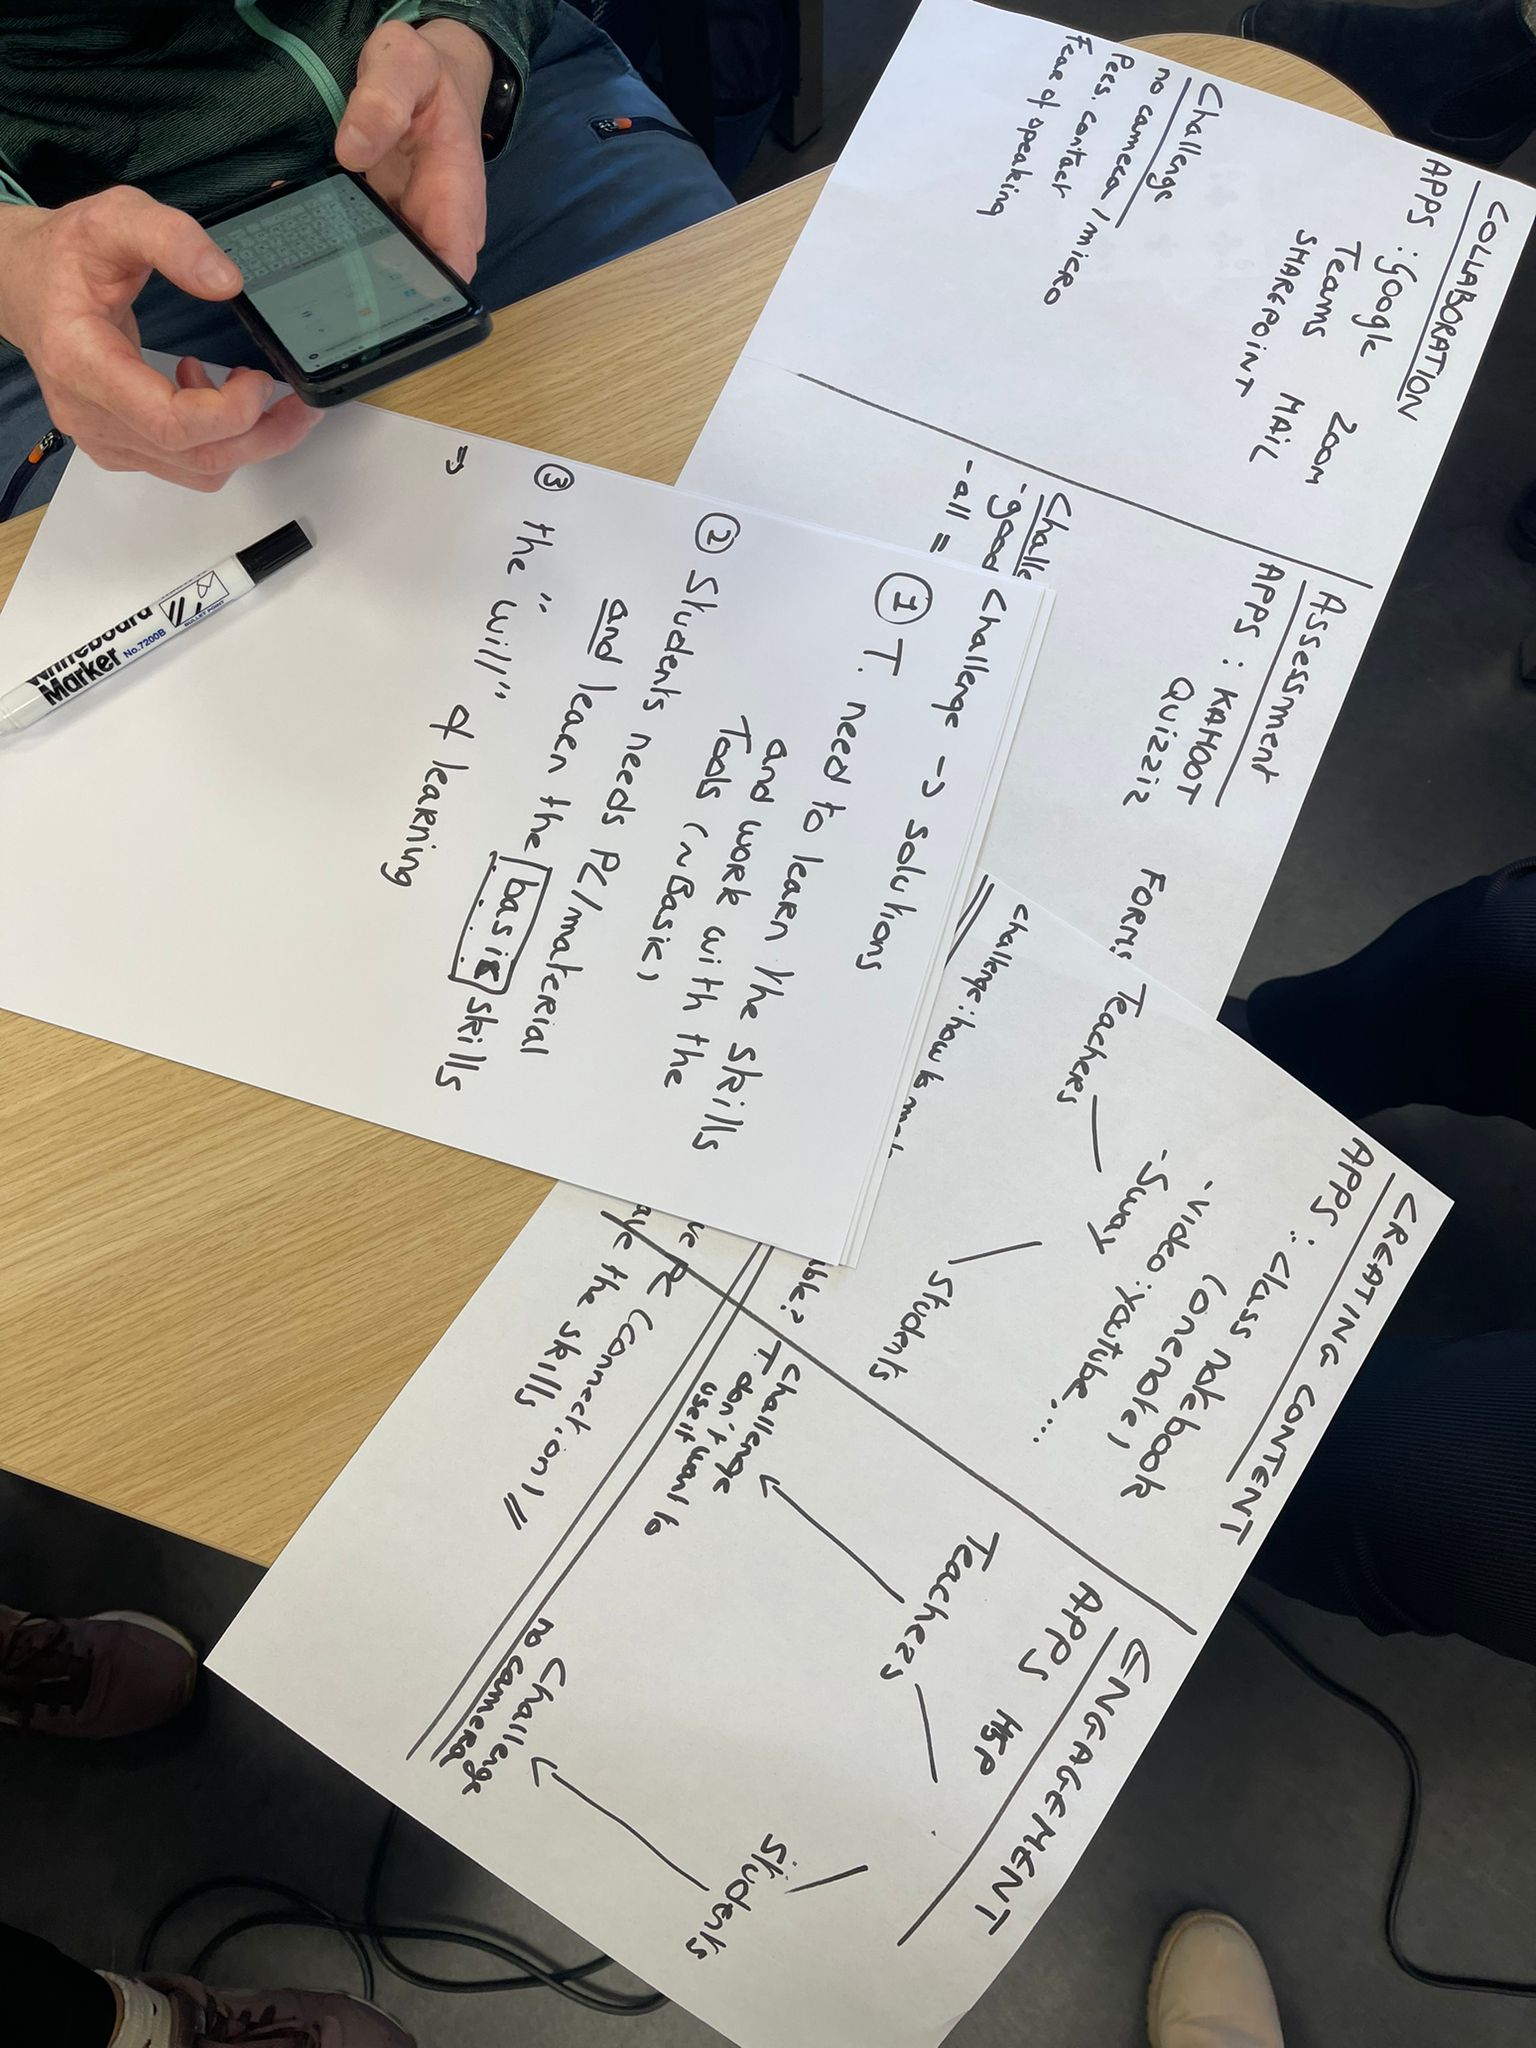 COLLABORATION
APPS : google zoom
Teams MAIL
SHAREPOINT
Challengs
no camera / micro
Pees. contact
Fear of speaking
Assessment
APPS : KAHOOT FORMS
QUIZZIZ
Challe
- good
- all =
Challenge -> solutions
① T. need to learn the skills
and work with the
Tools (~Basic)
② Students needs PC/material
and learn the basic skills
③ the "will" of learning
=>
CREATING CONTENT
APPS : Class notebook
(onenote)
- video : youtube....
- Sway
Teachers
Students
challenge : how to
ible?
ENGAGEMENT
APPS H5P
Teachers
Students
challenge
T don't want to
use it
Challenge
no camera
ve PC (connection) //
aye the skills
Whiteboard
Marker No.7200B
BULLET POINT